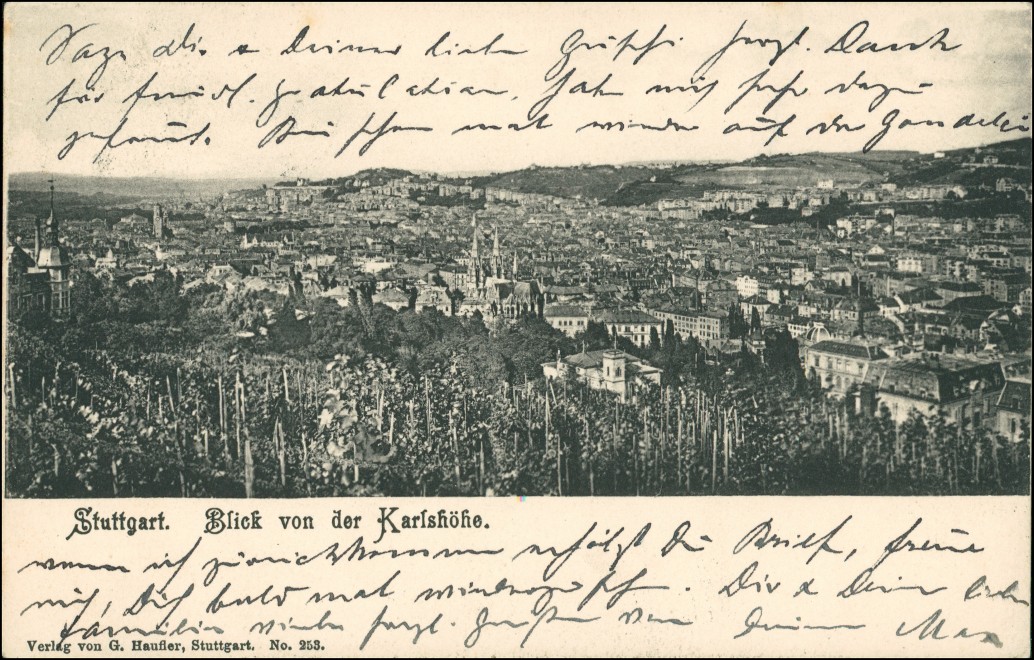 Sage Dir & Deiner lieben herzl. Dank
für freundl. Gratulation, habe mich sehr dazu
gefreut. mal wieder auf der
Stuttgart. Blick von der Karlshöhe.
wenn ich zurückkomme erhältst Du Brief, freue
mich, Dich bald mal wiederzusehen. Dir & Deiner lieben
Familie viele herzl. Grüße von Deinem Max
Verlag von G. Haufler, Stuttgart. No. 253.